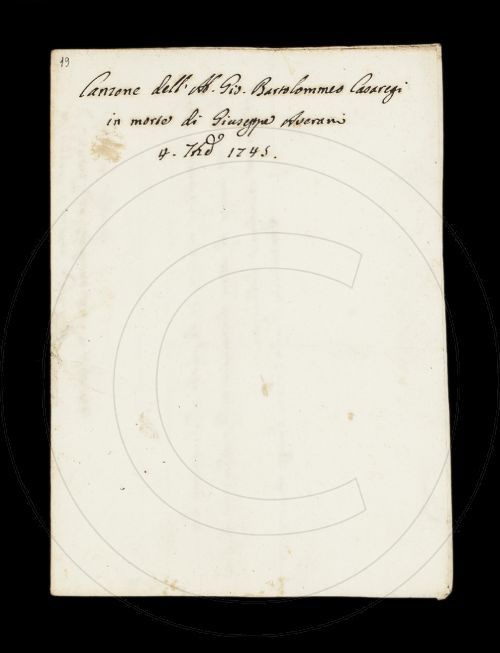 19
Canzone dell' Ab. Gio. Bartolommeo Casaregi
in morte di Giuseppe Averani
4. 1745.